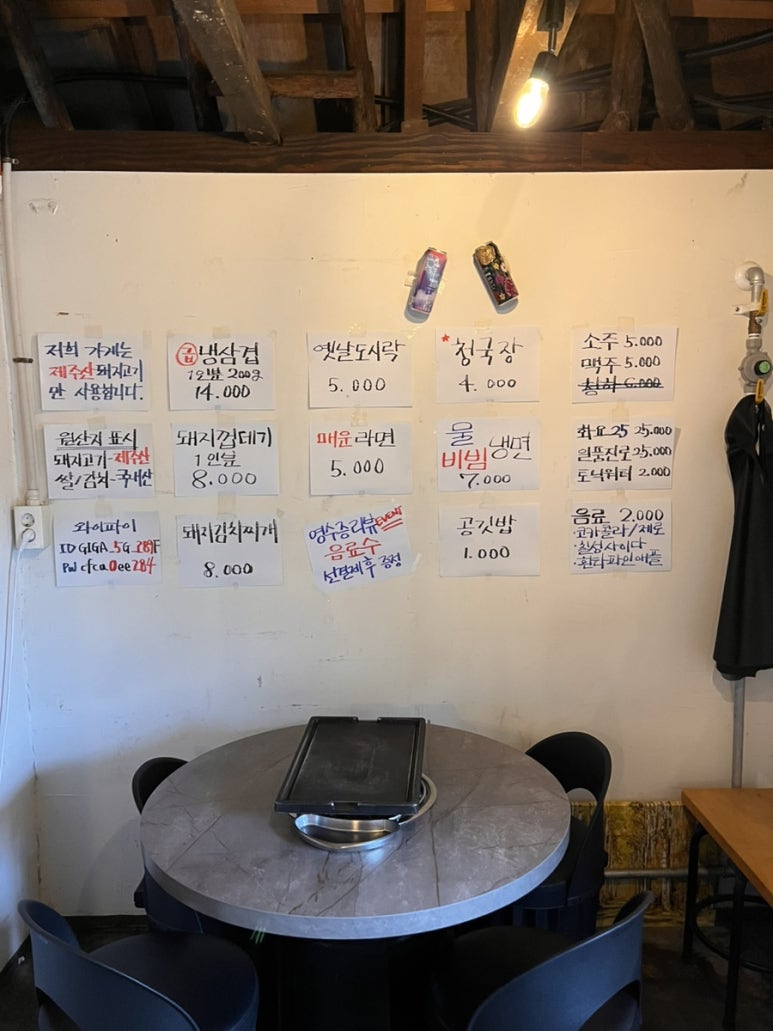 저희 가게는
제주산 돼지고기
만 사용합니다.
급 냉삼겹
1인분 200g
14.000
옛날도시락
5.000
청국장
4.000
소주 5.000
맥주 5.000
청하 6.000
원산지 표시
돼지고기-제주산
쌀/김치-국내산
돼지껍데기
1인분
8.000
매운라면
5.000
물
비빔 냉면
7.000
화요25 25.000
일품진로 25.000
토닉워터 2.000
와이파이
ID GIGA_5G
PW cfca0ee284
돼지김치찌개
8.000
영수증리뷰 EVENT
음료수
선결제후 증정
공깃밥
1.000
음료 2.000
·코카콜라/제로
·칠성사이다
·환타파인애플